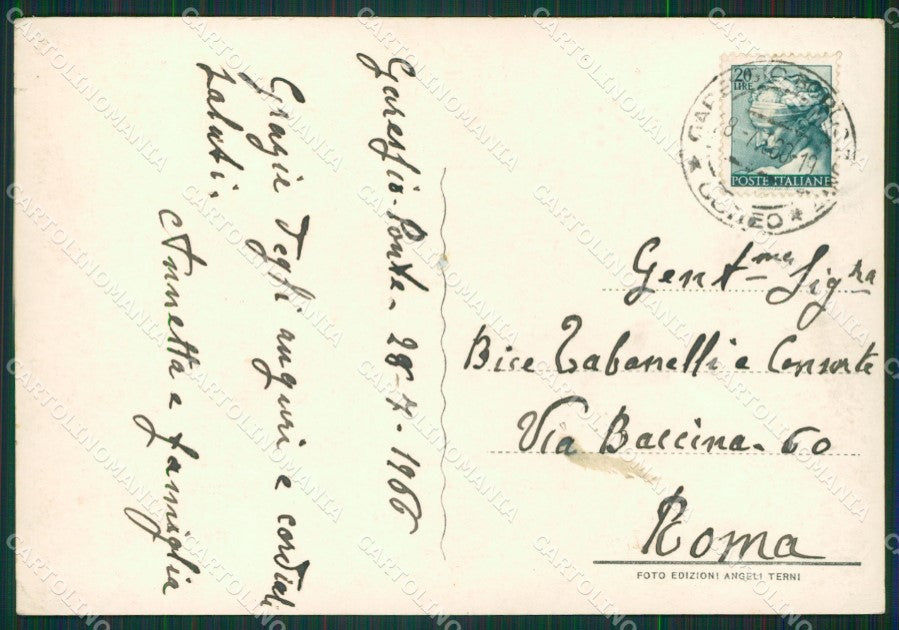 28-7-1966
Grazie degli auguri e cordiali
saluti.
Annetta e famiglia
20
LIRE
POSTE ITALIANE
Gent.me Sig.ra
Bice Tabanelli e Consorte
Via Baccina. 60
Roma
FOTO EDIZIONI ANGELI TERNI
CARTOLINOMANIA